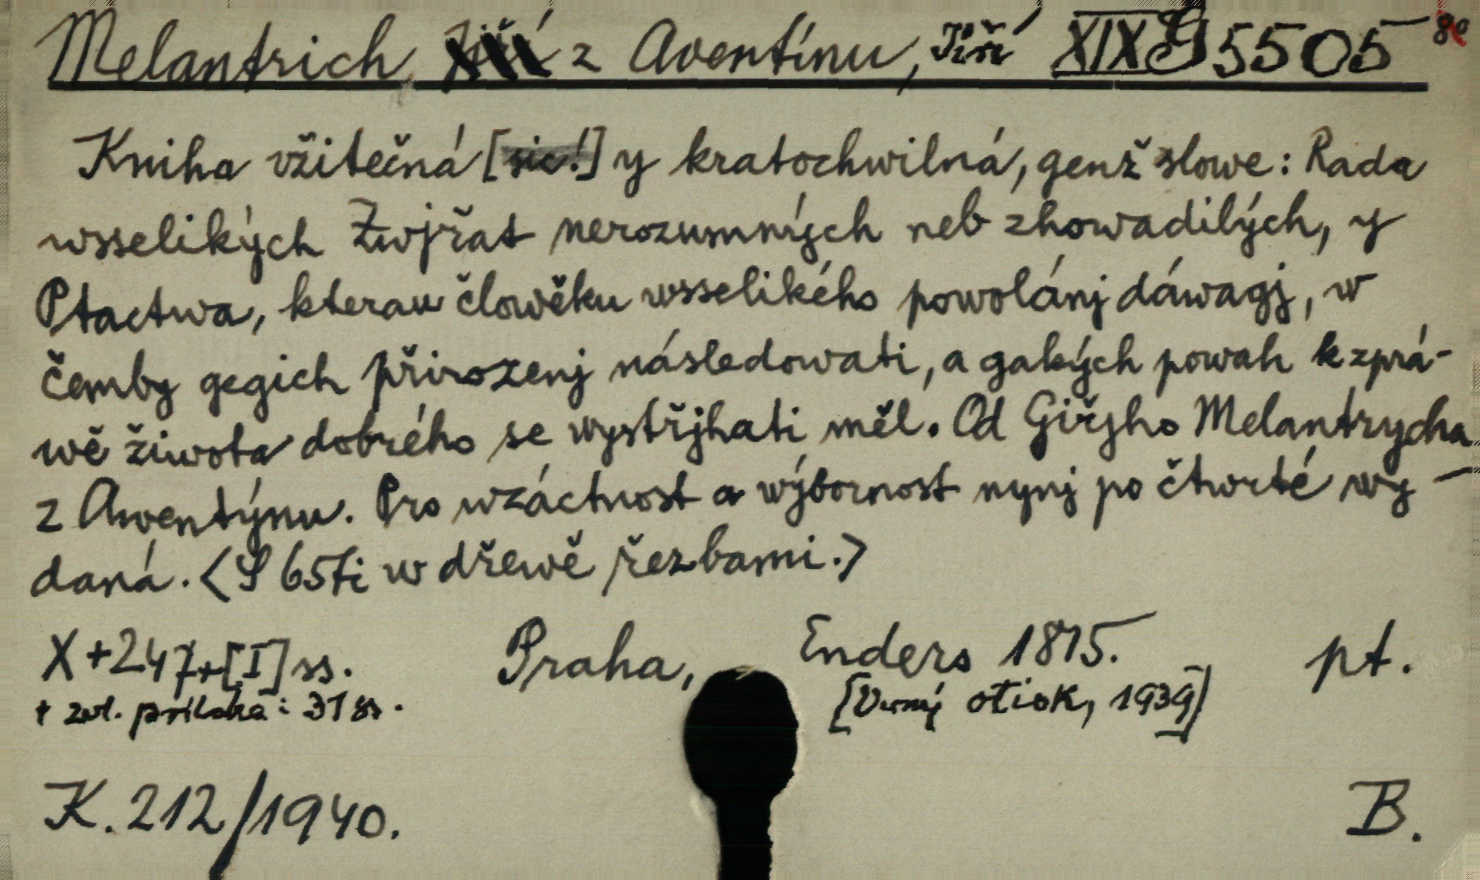 Melantrich z Aventínu, Jiří XIX G 5505
Kniha vžitečná [sic!] y kratochwilná, genž slowe: Rada
wsselikých Zwjřat nerozumných neb zhowadilých, y
Ptactwa, kterau člowěku wsselikého powolánj dáwagj, w
čemby gegich přirozenj následowati, a gakých powah k zprá-
wě žiwota dobrého se wystřjhati měl. Od Giřjho Melantrycha
z Awentýnu. Pro wzáctnost a wýbornost nynj po čtwrté wy-
daná. <S 65ti w dřewě řezbami.>
X+247+[I] ss. Praha, Enders 1815. pt.
+ zvl. příloha: 31 ss. [Věrný otisk, 1939]
K. 212/1940. B.